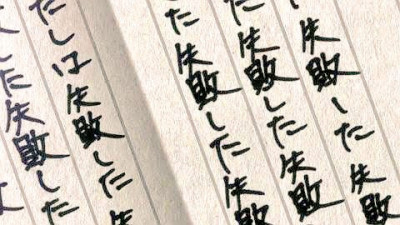 失敗した失敗
た失敗した失敗
した失敗した失敗
たしは失敗した失
した失敗した